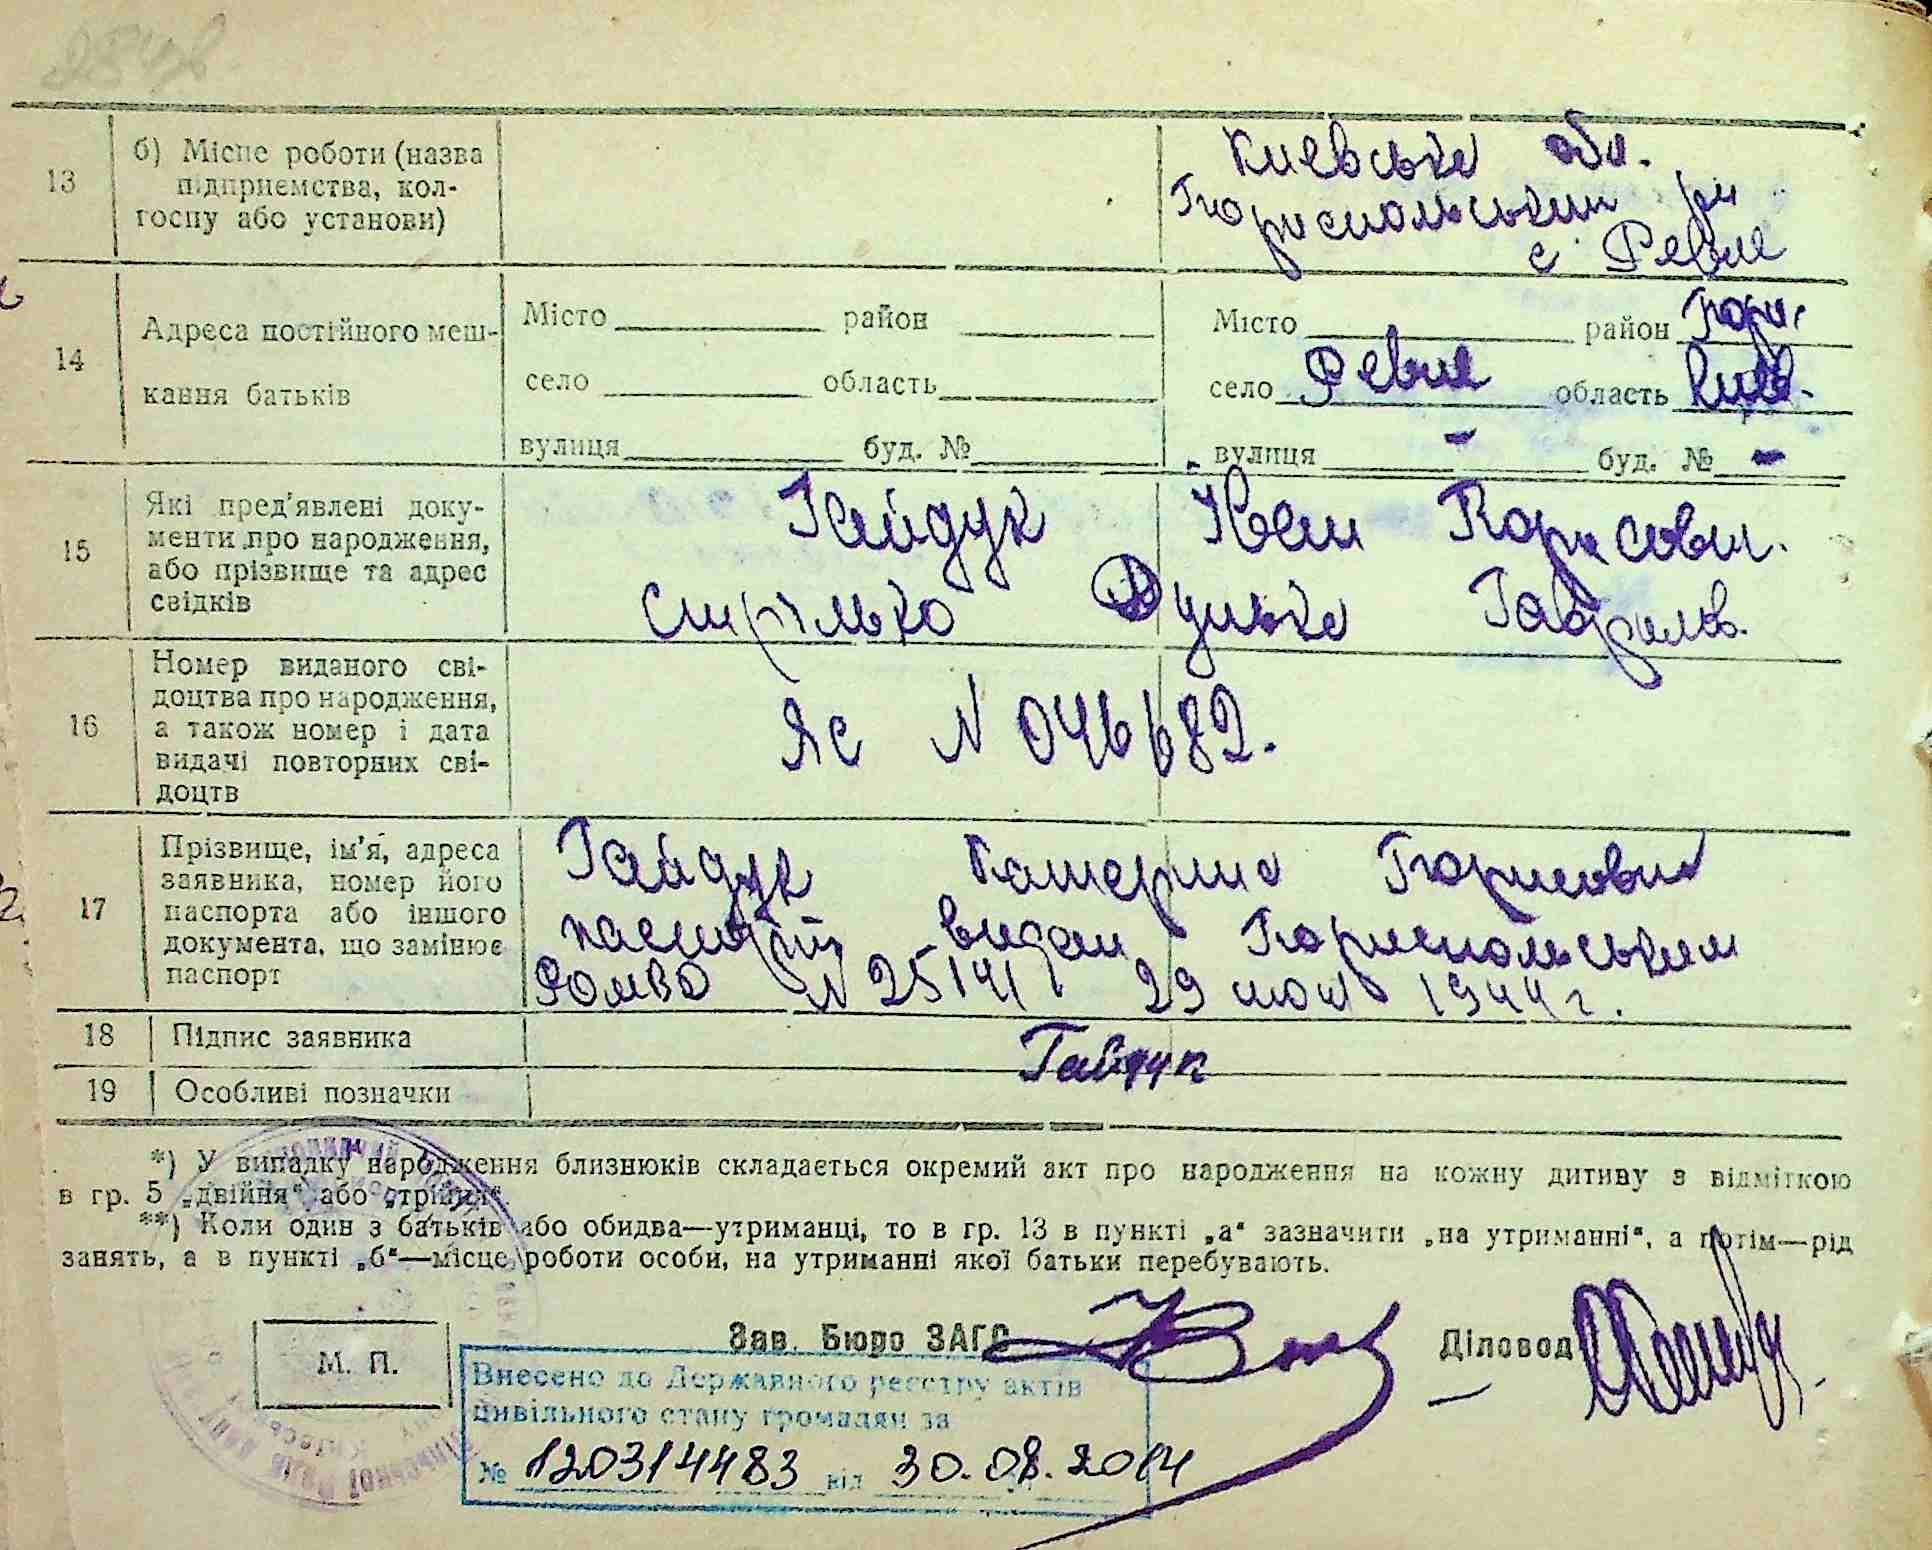 13
б) Місце роботи (назва
підприємства, кол-
госпу або установи)
Киевська обл.
Бориспольський р-н
с Ревне
14
Адреса постійного меш-
кання батьків
Місто район
село область
вулиця буд. №
Місто район Бори.
село Ревне область Київ.
вулиця - буд. № -
15
Які пред'явлені доку-
менти про народження,
або прізвище та адрес
свідків
Гайдук Іван Борисович.
Стрілько Дунька Гаврилов.
16
Номер виданого сві-
доцтва про народження,
а також номер і дата
видачі повторних сві-
доцтв
Яс N 046682.
17
Прізвище, ім'я, адреса
заявника, номер його
паспорта або іншого
документа, що замінює
паспорт
Гайдук Катерина Борисовна
паспорт видан Бориспольським
РОМВД N 29 1944 г.
18
Підпис заявника
Гайдук
19
Особливі позначки
*) У випадку народження близнюків складається окремий акт про народження на кожну дитину з відміткою
в гр. 5 „двійня“ або „трійня“.
**) Коли один з батьків або обидва—утриманці, то в гр. 13 в пункті „а“ зазначити „на утриманні“, а потім—рід
занять, а в пункті „б“—місце роботи особи, на утриманні якої батьки перебувають.
М. П.
Зав. Бюро ЗАГС
Діловод
Внесено до Державного реєстру актів
цивільного стану громадян за
№ 120314483 від 30.08.2014